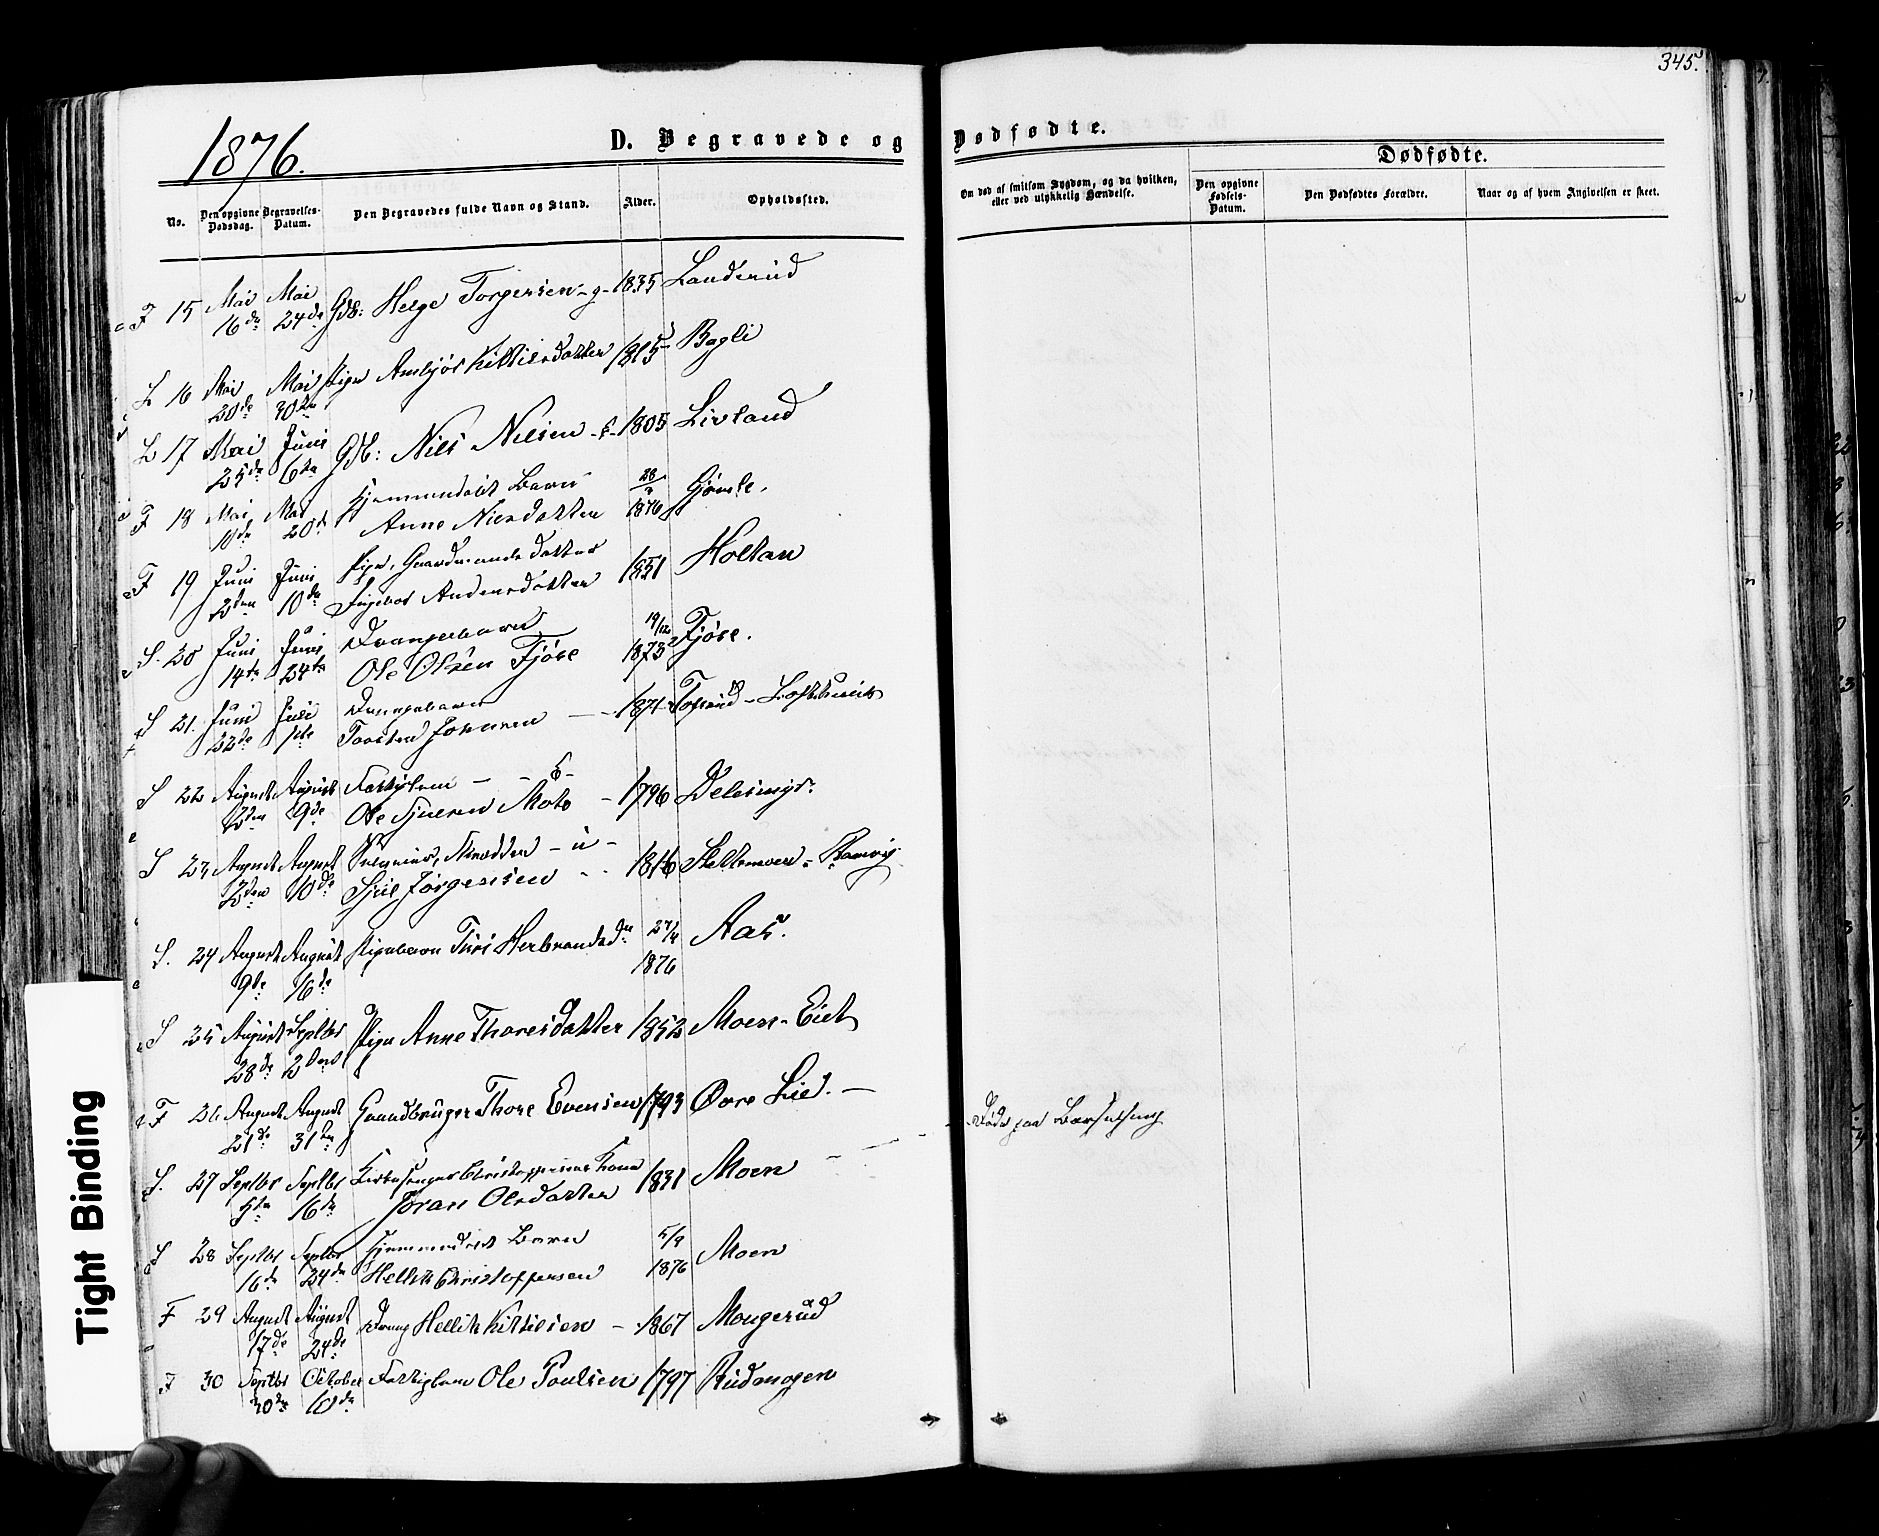 345.
1876.
D. Begravede og Dødfødte.
No.
Den opgivne Dødsdag.
Begravelses-Datum.
Den Begravedes fulde Navn og Stand.
Alder.
Opholdssted.
Om død af smitsom Sygdom, og da hvilken, eller ved ulykkelig Hændelse.
Dødfødte.
Den opgivne Fødsels-Datum.
Den Dødfødtes Forældre.
Naar og af hvem Angivelsen er skeet.
F 15 Mai Mai Helge Torgersen - g - 1835 Landerud
16de 24de
L 16 Mai Mai Pige Ambjør Kittilsdatter 1815 Bagli
20de 30te
L 17 Mai Juni Nils Nilsen - f - 1805 Livland
25de 6te
F 18 Mai Mai Hjemmedøbt Barn 1876 Gjømle.
10de 20de Anne Nilsdatter
F 19 Juni Juni Pige, Gaardmands Datter 1851 Holtan
2den 10de Ingebor Andersdatter
S. 20 Juni Juni Drængebarn 19/12 Fjøse.
14de 24de Ole Olsen Fjøse 1873
S 21. Juni Juli Drængebarn
22de 1ste Torsten Johnsen - - 1871
S 22 August August Fattiglem - - E -
2den 9de Ole 1796
S 23 August August - u -
2den 10de Jørgensen - - 1816
S. 24 August August Pigebarn Turi Herbrandsdr. 27/4 Aas.
9de 16de 1876
S 25 August Septbr Pige Anne Thoresdatter 1852 Moen - Eiet
28de 2den
F 26 August August Gaardbruger Thore Evensen 1793 Øvre Lie. -
21de 31te
S. 27 Septbr Septbr Kirkesanger Christoffersens Kone 1831 Moen - Døde paa Barselseng
5te 16de Jøran Olsdatter
S 28 Septbr Septbr Hjemmedøbt Barn 5/9 Moen
16de 24de Hellik Christoffersen 1876
F 29 August August Dreng Hellik Kittilsen - 1867 Mougerud
17de 24de
F 30 Septbr October Fattiglem Ole Paulsen 1797
30te 10de
Tight Binding